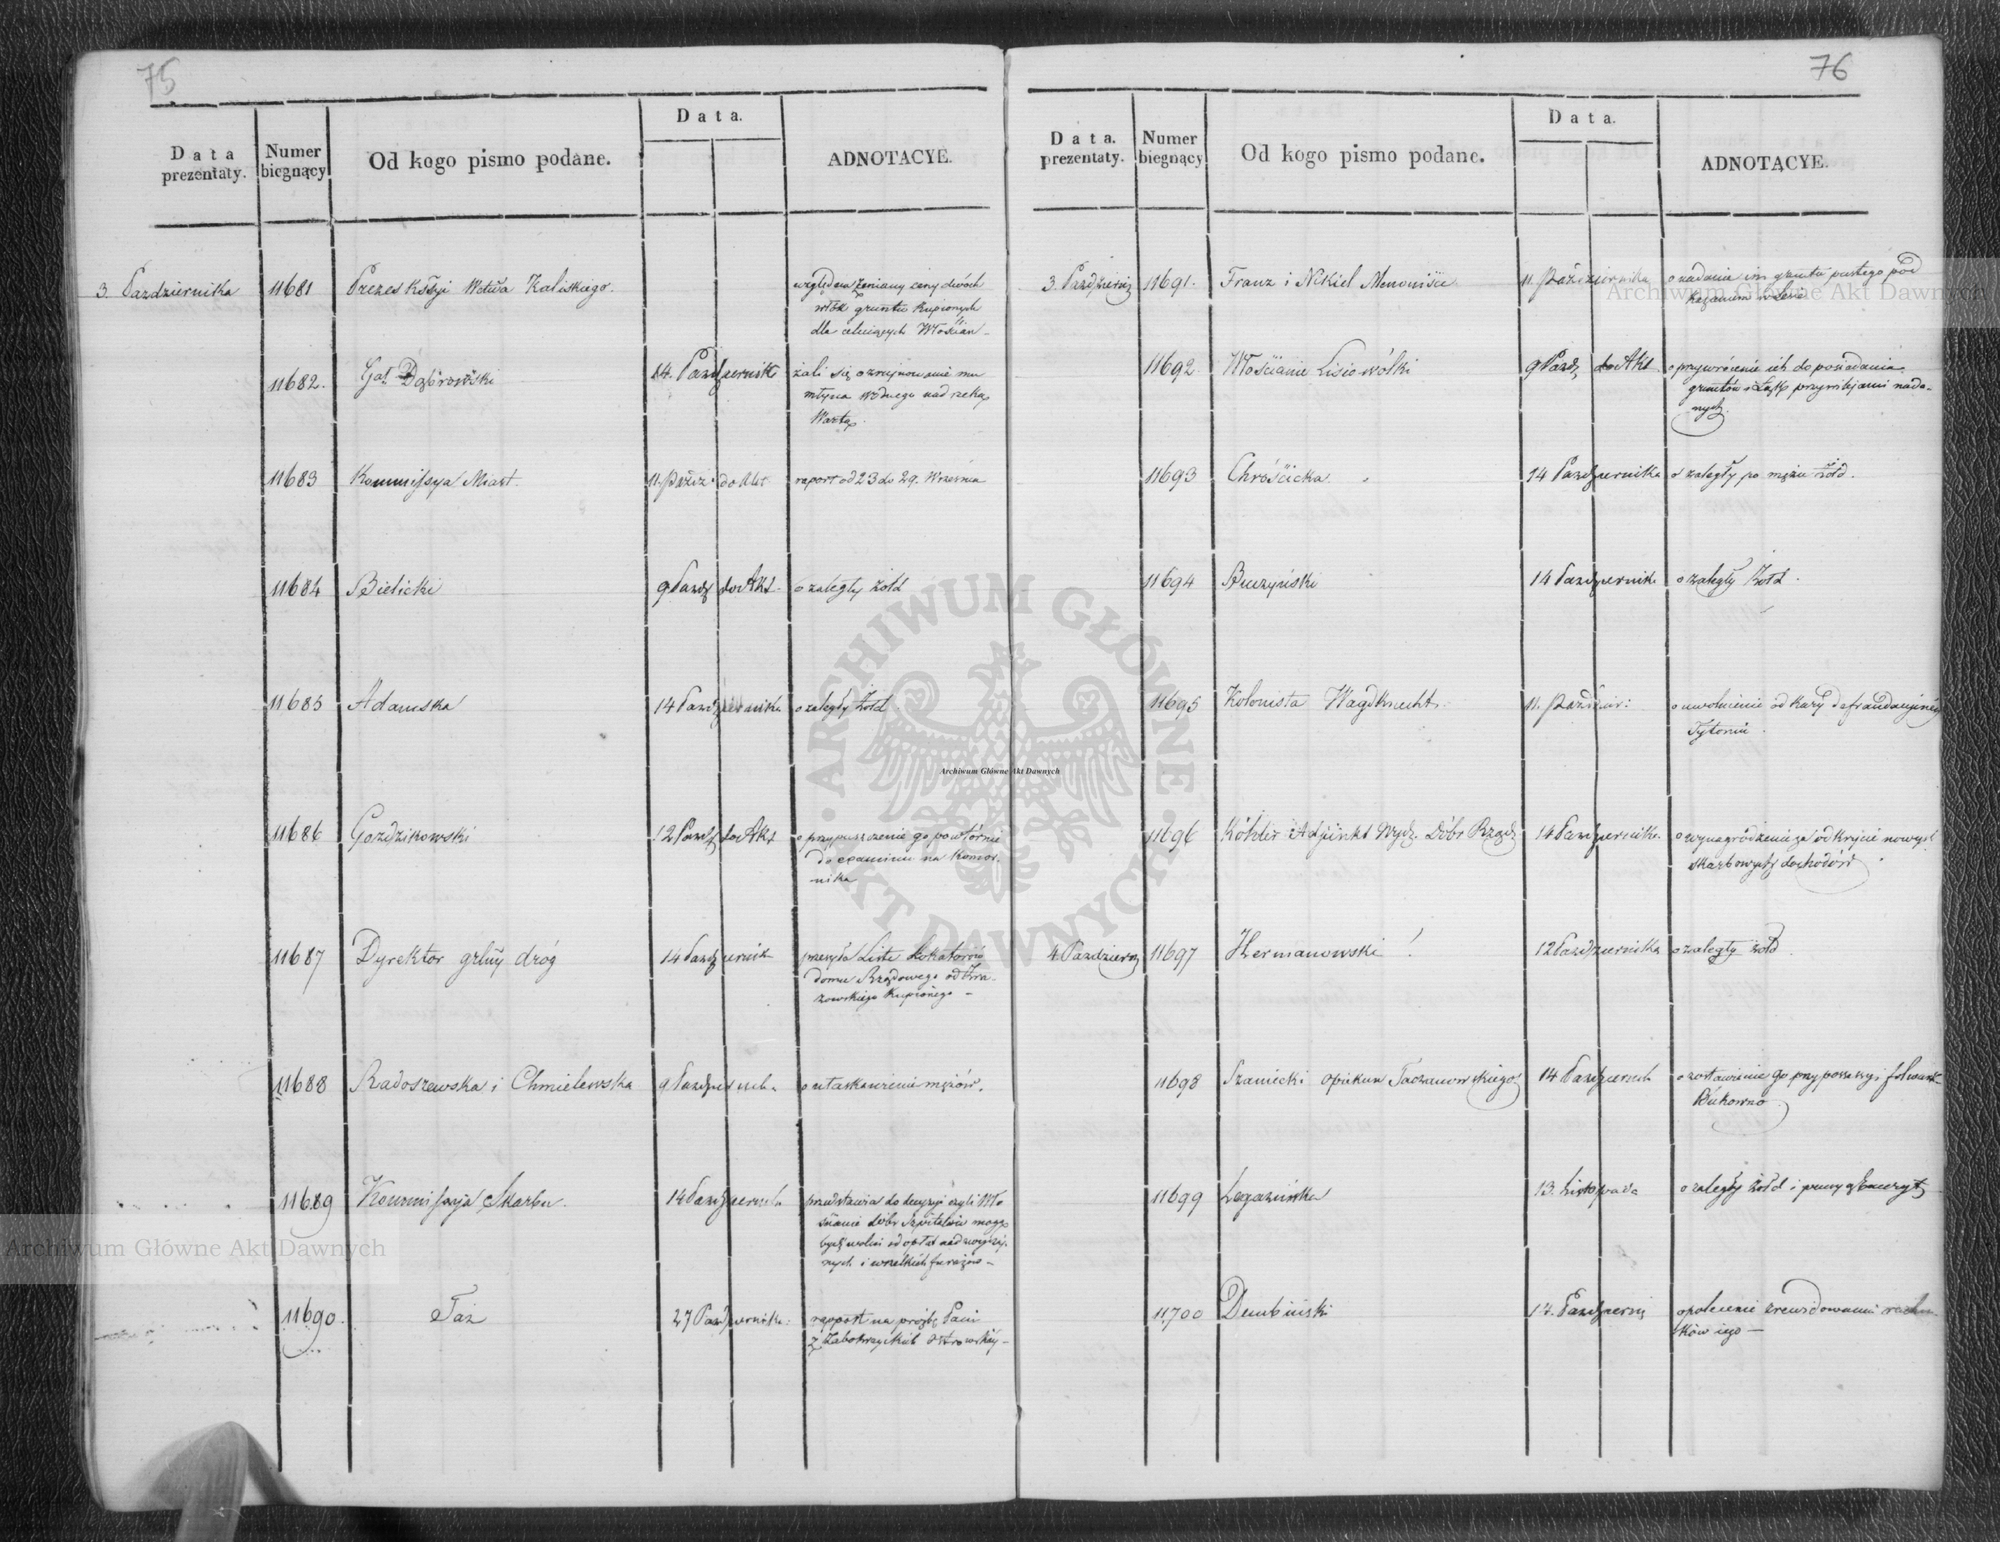 75
Data prezentaty.
Numer biegnący
Od kogo pismo podane.
Data.
ADNOTACYE.
3. Pazdziernika 11681 Prezes Kssyi Wctwa Kaliskiego.
względem zmiany ceny dwóch
włók gruntu kupionych
dla Włościan
11682. Gał. Dąbrowski 14. Pazdziernik żali się o zrujnowanie mu
młyna wodnego nad rzeką
Wartą.
11683 Kommissya Miast 11. Paźdz. do Akt raport od 23 do 29. Września
11684 Bielicki 9 Pazdz do Akt. o zaległy żołd
11685 Adamska 14 Pazdziernika o zaległy żołd.
11686 Gozdzikowski 12 Pazdz do Akt o przypuszczenie go powtórnie
do examinu na Komor.
nika
11687 Dyrektor grlny dróg 14 Pazdziernik przesyła Listę Lokatorów
domu Rządowego od
kupionego
11688 Radoszewska i Chmielewska 9 Pazdziernik. o ułaskawienie mężów.
11689 Kommissyja Skarbu. 14 Pazdziernik przedstawia do decyzyi czyli Wło
ścianie dóbr Szpitalów mogą
być wolni od opłat nadzwyczaj.
nych i wszelkich furażów
11690. Taż 27 Pazdziernika rapport na prośbę Pani
z
76
Data. prezentaty.
Numer biegnący
Od kogo pismo podane.
Data.
ADNOTACYE.
3. Pazdziern 11691. Franz i Nickiel Menoniści 11. Paździiernika o nadanie im gruntu pustego pod
11692 Włościanie Lisiowólki 9 Pazdz do Akt. o przywrócenie ich do posiadania
gruntów i Łąk przywilejami nada-
nych.
11693 Chrościcka 14 Pazdziernika o zaległy po mężu żołd.
11694 Buczyński 14 Pazdziernik o zaległy żołd.
11695 Kolonista Wagdknecht. 11. Paździer: o uwolnienie od kary defraudacyinéy
Tytoniu.
11696 Köhler Adjunkt Wydz. Dóbr Rząd 14 Pazdziernika. o wynagrodzenie za odkrycie nowych
skarbowych dochodów
4. Pazdziern 11697 Hermanowski 12 Pazdziernika o zaległy żołd.
11698 Szaniecki opiekun Taczanowskiego 14 Pazdziernik o zostawienie go przy possessyi folwark
Bukowno
11699 Legazińska 13. Listopada o zaległy żołd i
11,700 Dembiński 14. Pazdziern o polecenie zrewidowania rachun
ków iego —
ARCHIWUM GŁÓWNE AKT DAWNYCH
Archiwum Główne Akt Dawnych
Archiwum Główne Akt Dawnych
Archiwum Główne Akt Dawnych